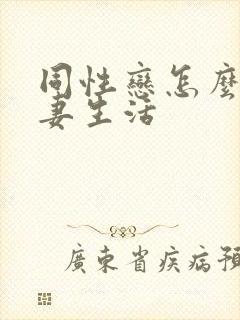 同性戀怎麼
妻生活
廣東省疾病預